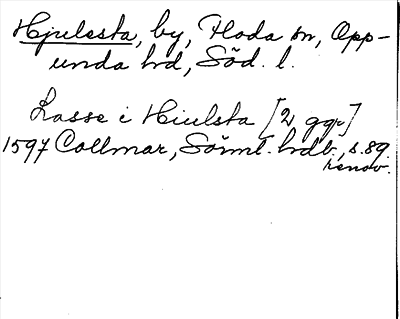 Hjulsta, by, Floda sn, Opp-
unda hd, Söd. l.
Lasse i Hiulsta [2 ggr]
1597 Collmar, Sörml. hrdb., s. 89.
renov.